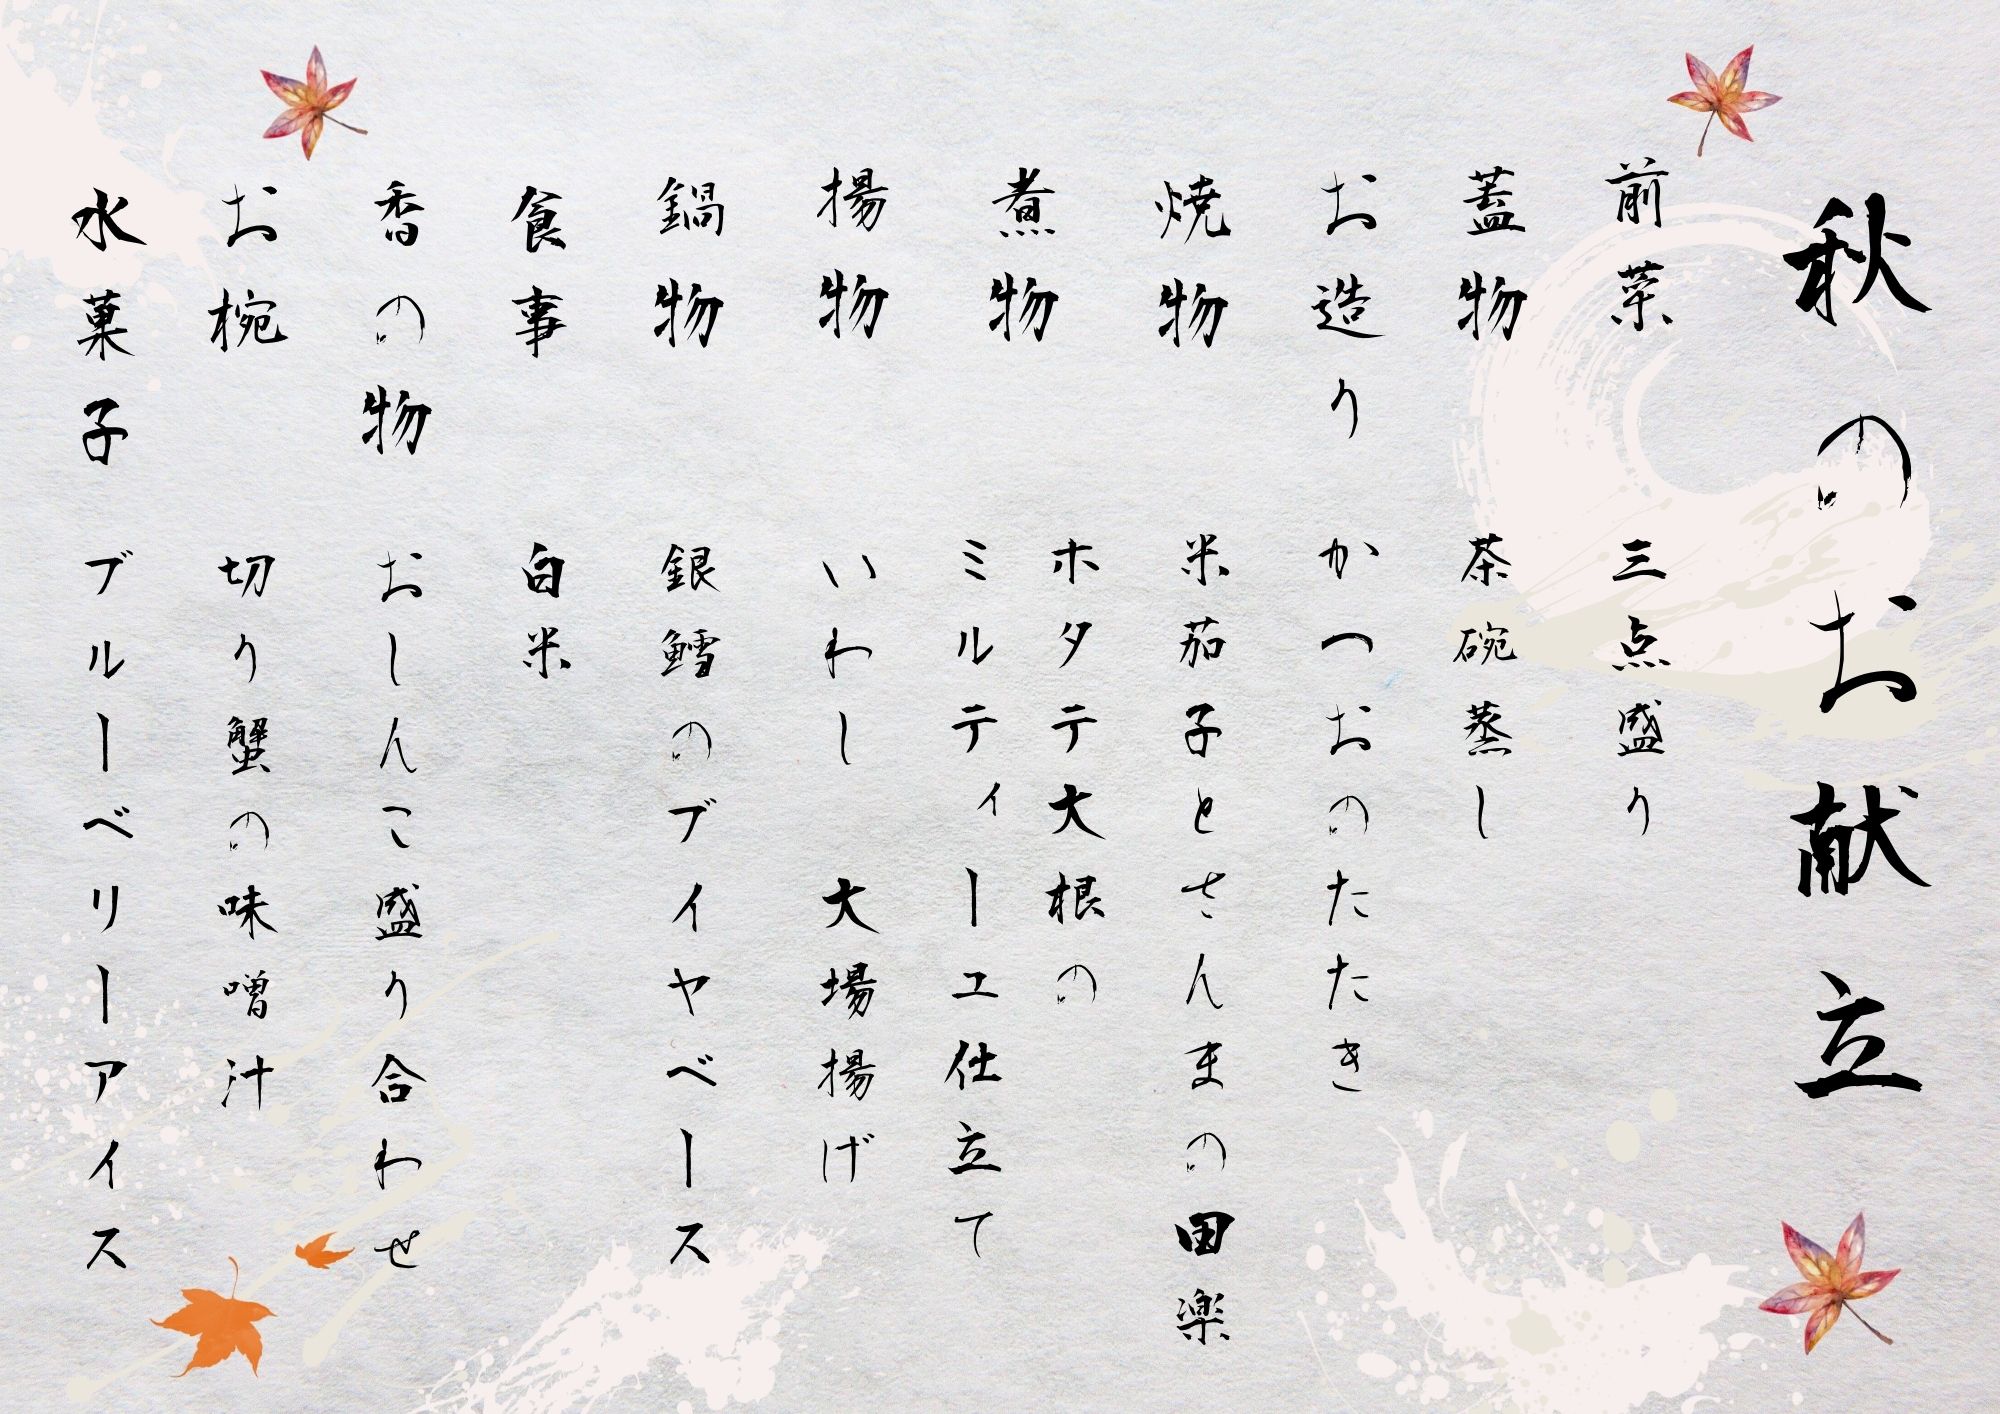 秋のお献立
前菜 三点盛り
蓋物 茶碗蒸し
お造り かつおのたたき
焼物 米茄子とさんまの田楽
煮物 ホタテ大根の
ミルティーユ仕立て
揚物 いわし 大場揚げ
鍋物 銀鱈のブイヤベース
食事 白米
香の物 おしんこ盛り合わせ
お椀 切り蟹の味噌汁
水菓子 ブルーベリーアイス